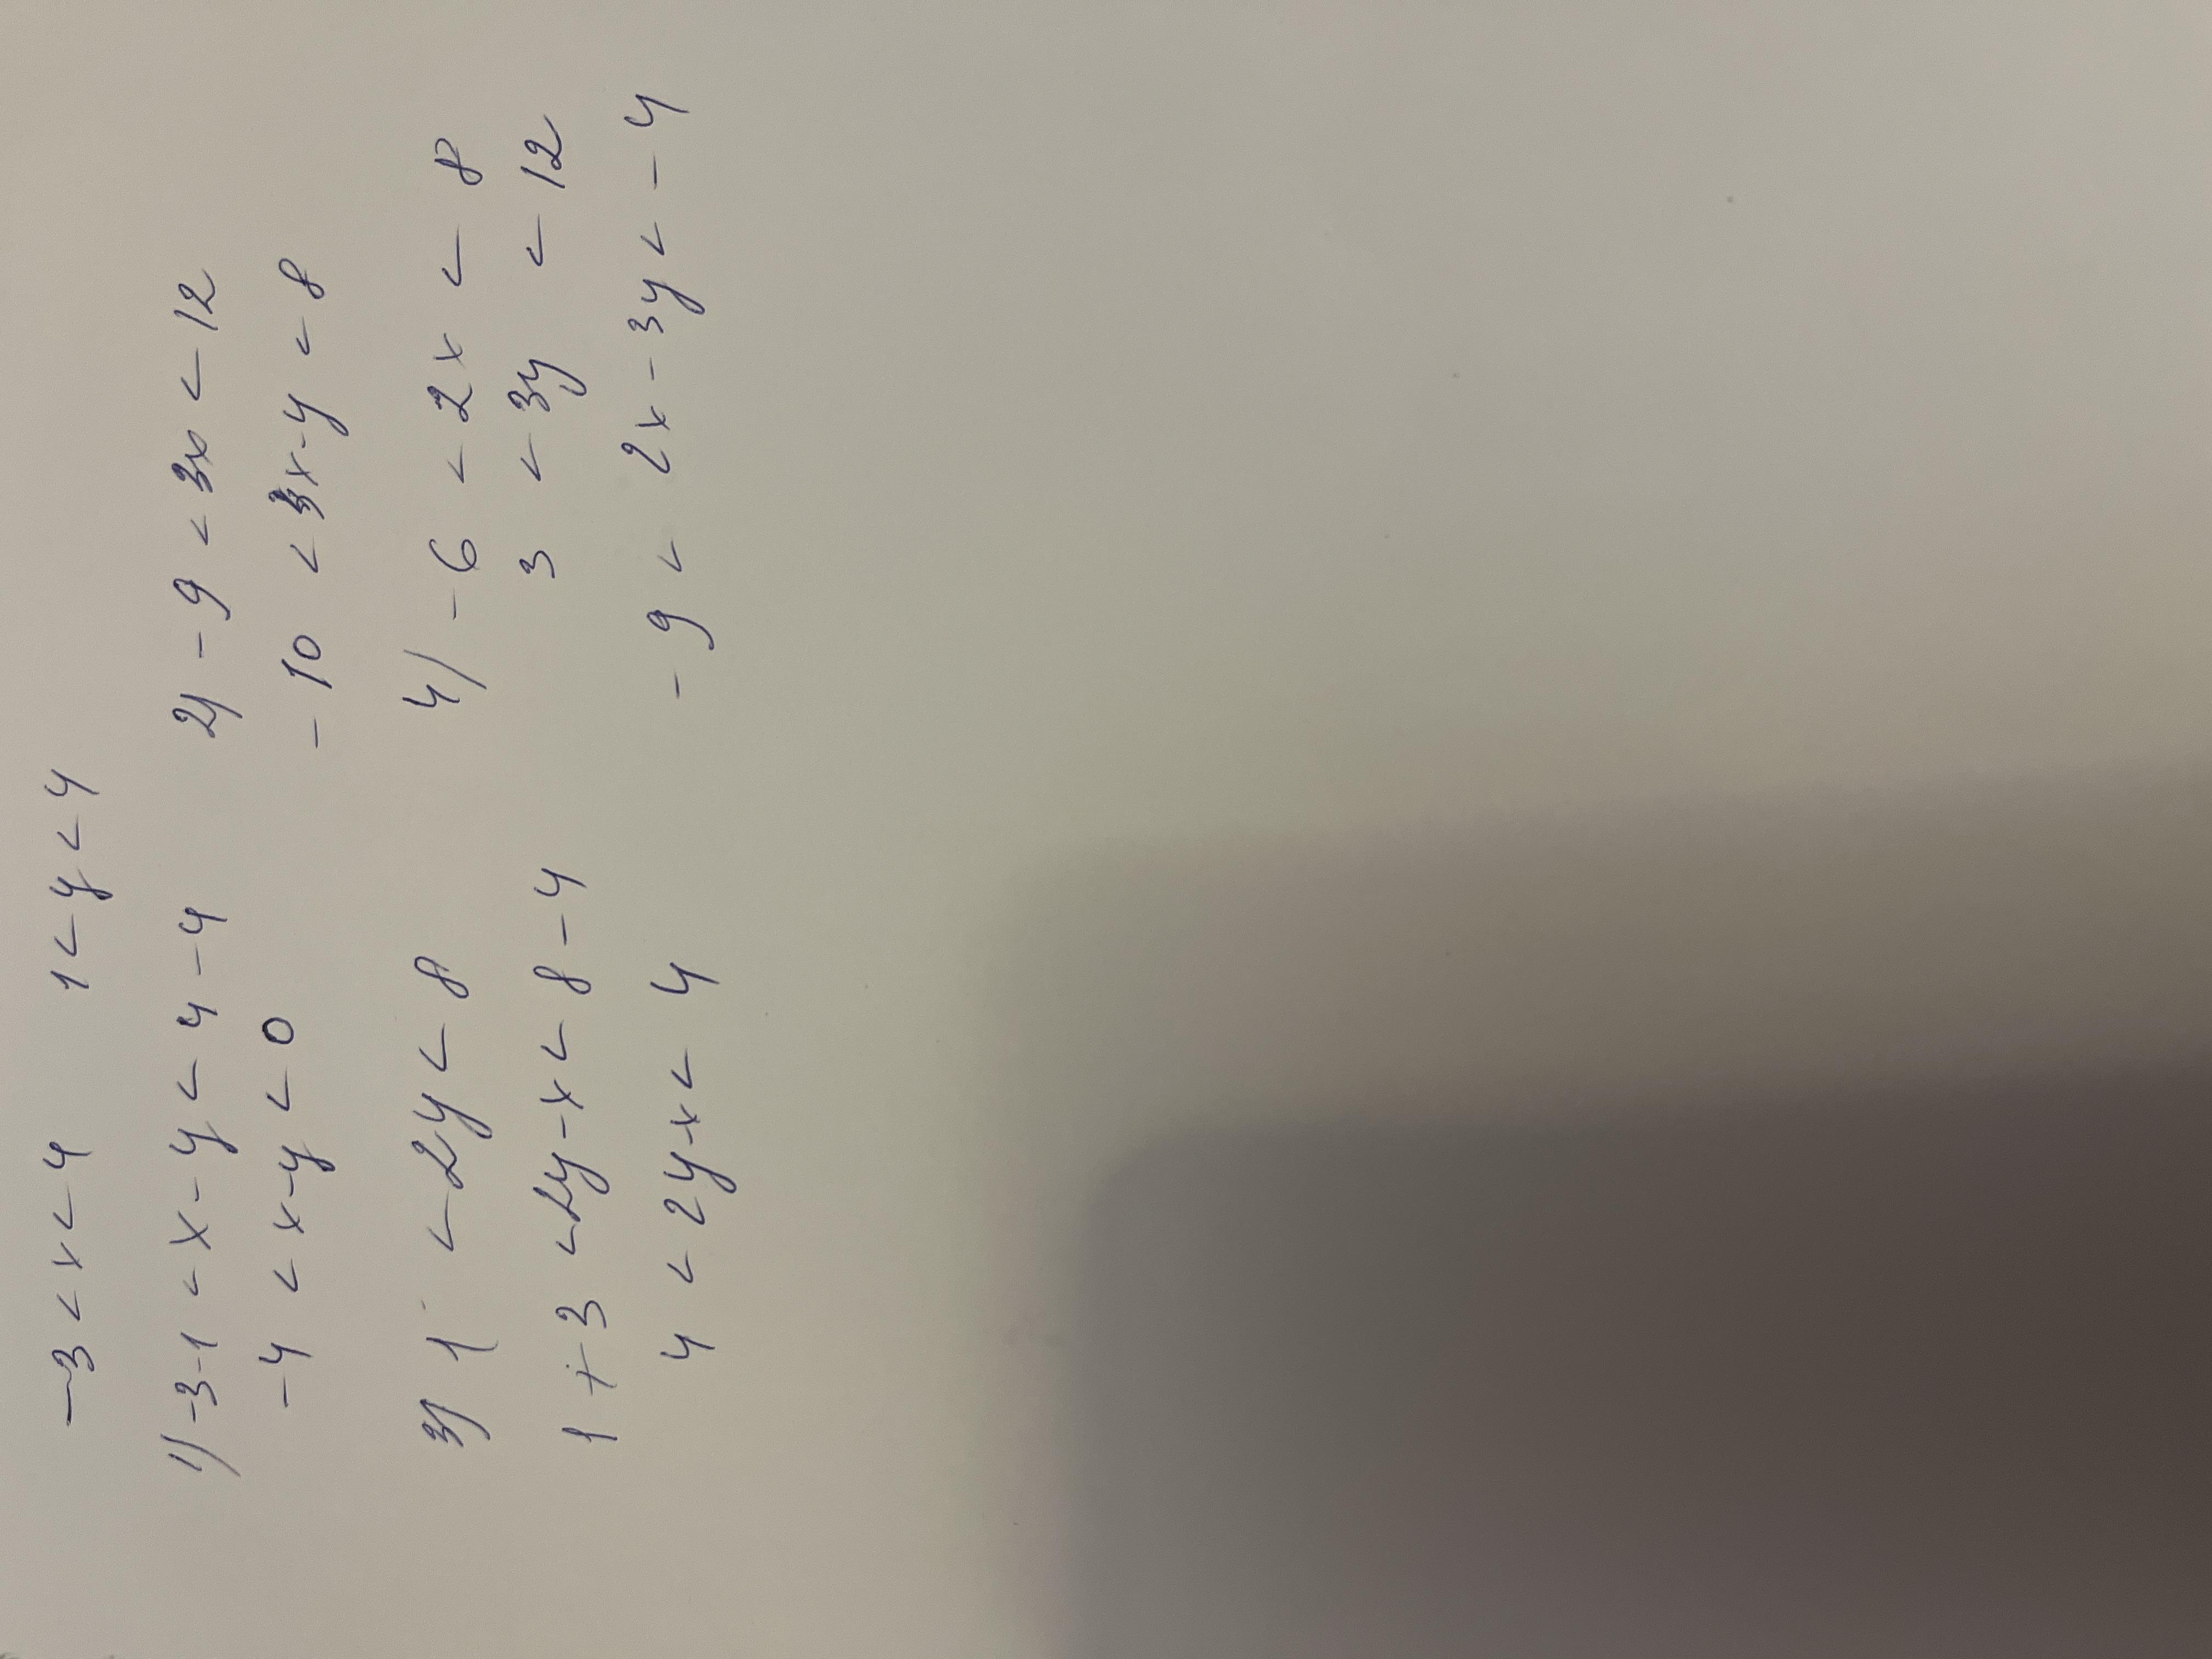 -3 < x < 4 1 < y < 4
1) -3-1 < x - y < 4 - 4
-4 < x-y < 0
2) -9 < 3x < 12
-10 < 3x-y < 8
3) 1 < 2y < 8
1 + 3 < 2y - x < 8 - 4
4 < 2y-x < 4
4) -6 < 2x < 8
3 < 3y < 12
-9 < 2x - 3y < -4